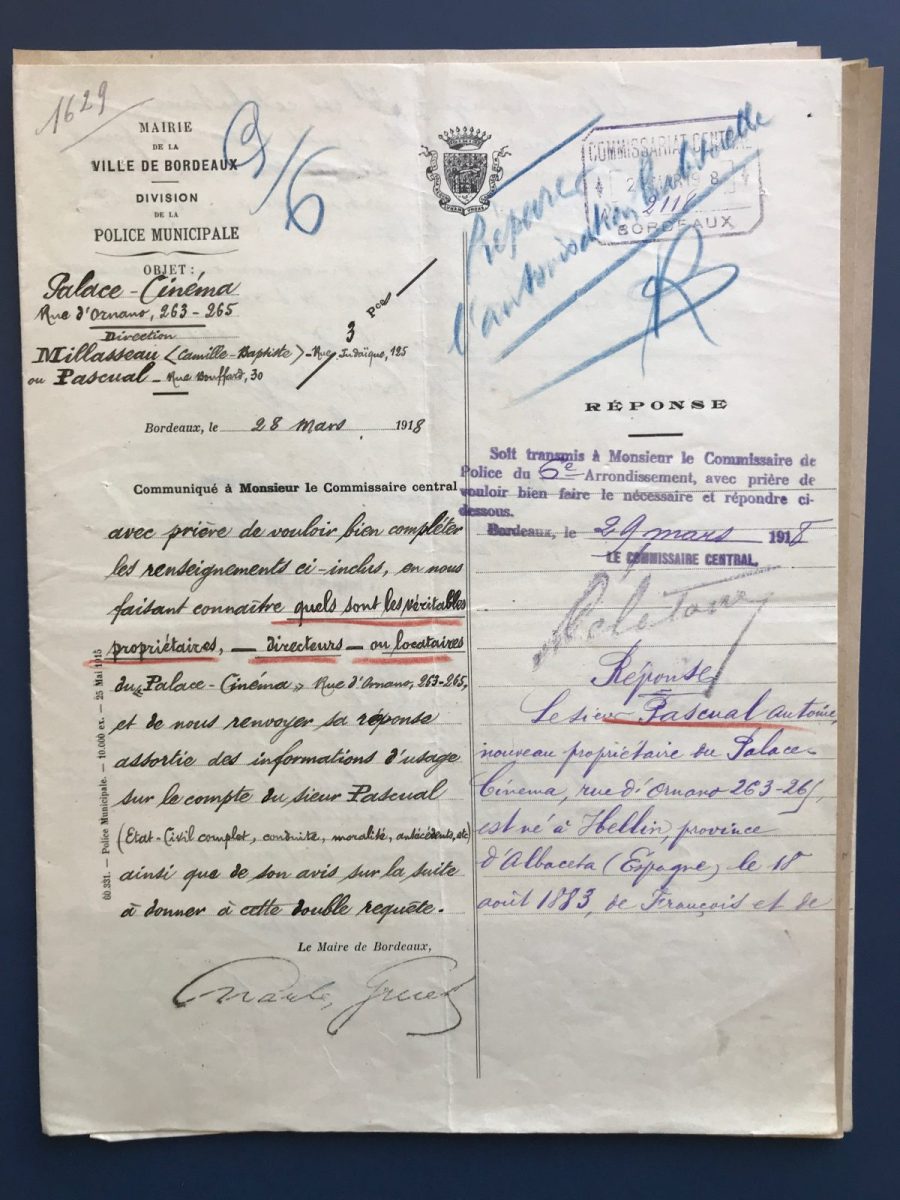 1629
MAIRIE
DE LA
VILLE DE BORDEAUX
DIVISION
DE LA
POLICE MUNICIPALE
OBJET :
Palace-Cinéma
Rue d'Ornano, 263-265
Direction
Millasseau (Camille-Baptiste) - Rue Judaïque, 125
ou Pascual - Rue Bouffard, 30
3 Pces
9/6
Bordeaux, le 28 mars 1918
Communiqué à Monsieur le Commissaire central
avec prière de vouloir bien compléter
les renseignements ci-inclus, en nous
faisant connaître quels sont les véritables
propriétaires, - directeurs - ou locataires
du "Palace-Cinéma" Rue d'Ornano, 263-265,
et de nous renvoyer sa réponse
assortie des informations d'usage
sur le compte du sieur Pascual
(Etat-Civil complet, conduite, moralité, antécédents, etc)
ainsi que de son avis sur la suite
à donner à cette double requête.
Le Maire de Bordeaux,
Charles Gruet
60.331. — Police Municipale. — 10.000 ex. — 25 Mai 1915
COMMISSARIAT CENTRAL
2118
BORDEAUX
Préparer
l'autorisation habituelle
RÉPONSE
Soit transmis à Monsieur le Commissaire de
Police du 6e Arrondissement, avec prière de
vouloir bien faire le nécessaire et répondre ci-
dessous.
Bordeaux, le 29 mars 1918
LE COMMISSAIRE CENTRAL,
Réponse
Le sieur Pascual Antoine,
nouveau propriétaire du Palace-
Cinéma, rue d'Ornano 263-265,
est né à Hellin, province
d'Albaceta (Espagne) le 18
août 1883, de François et de